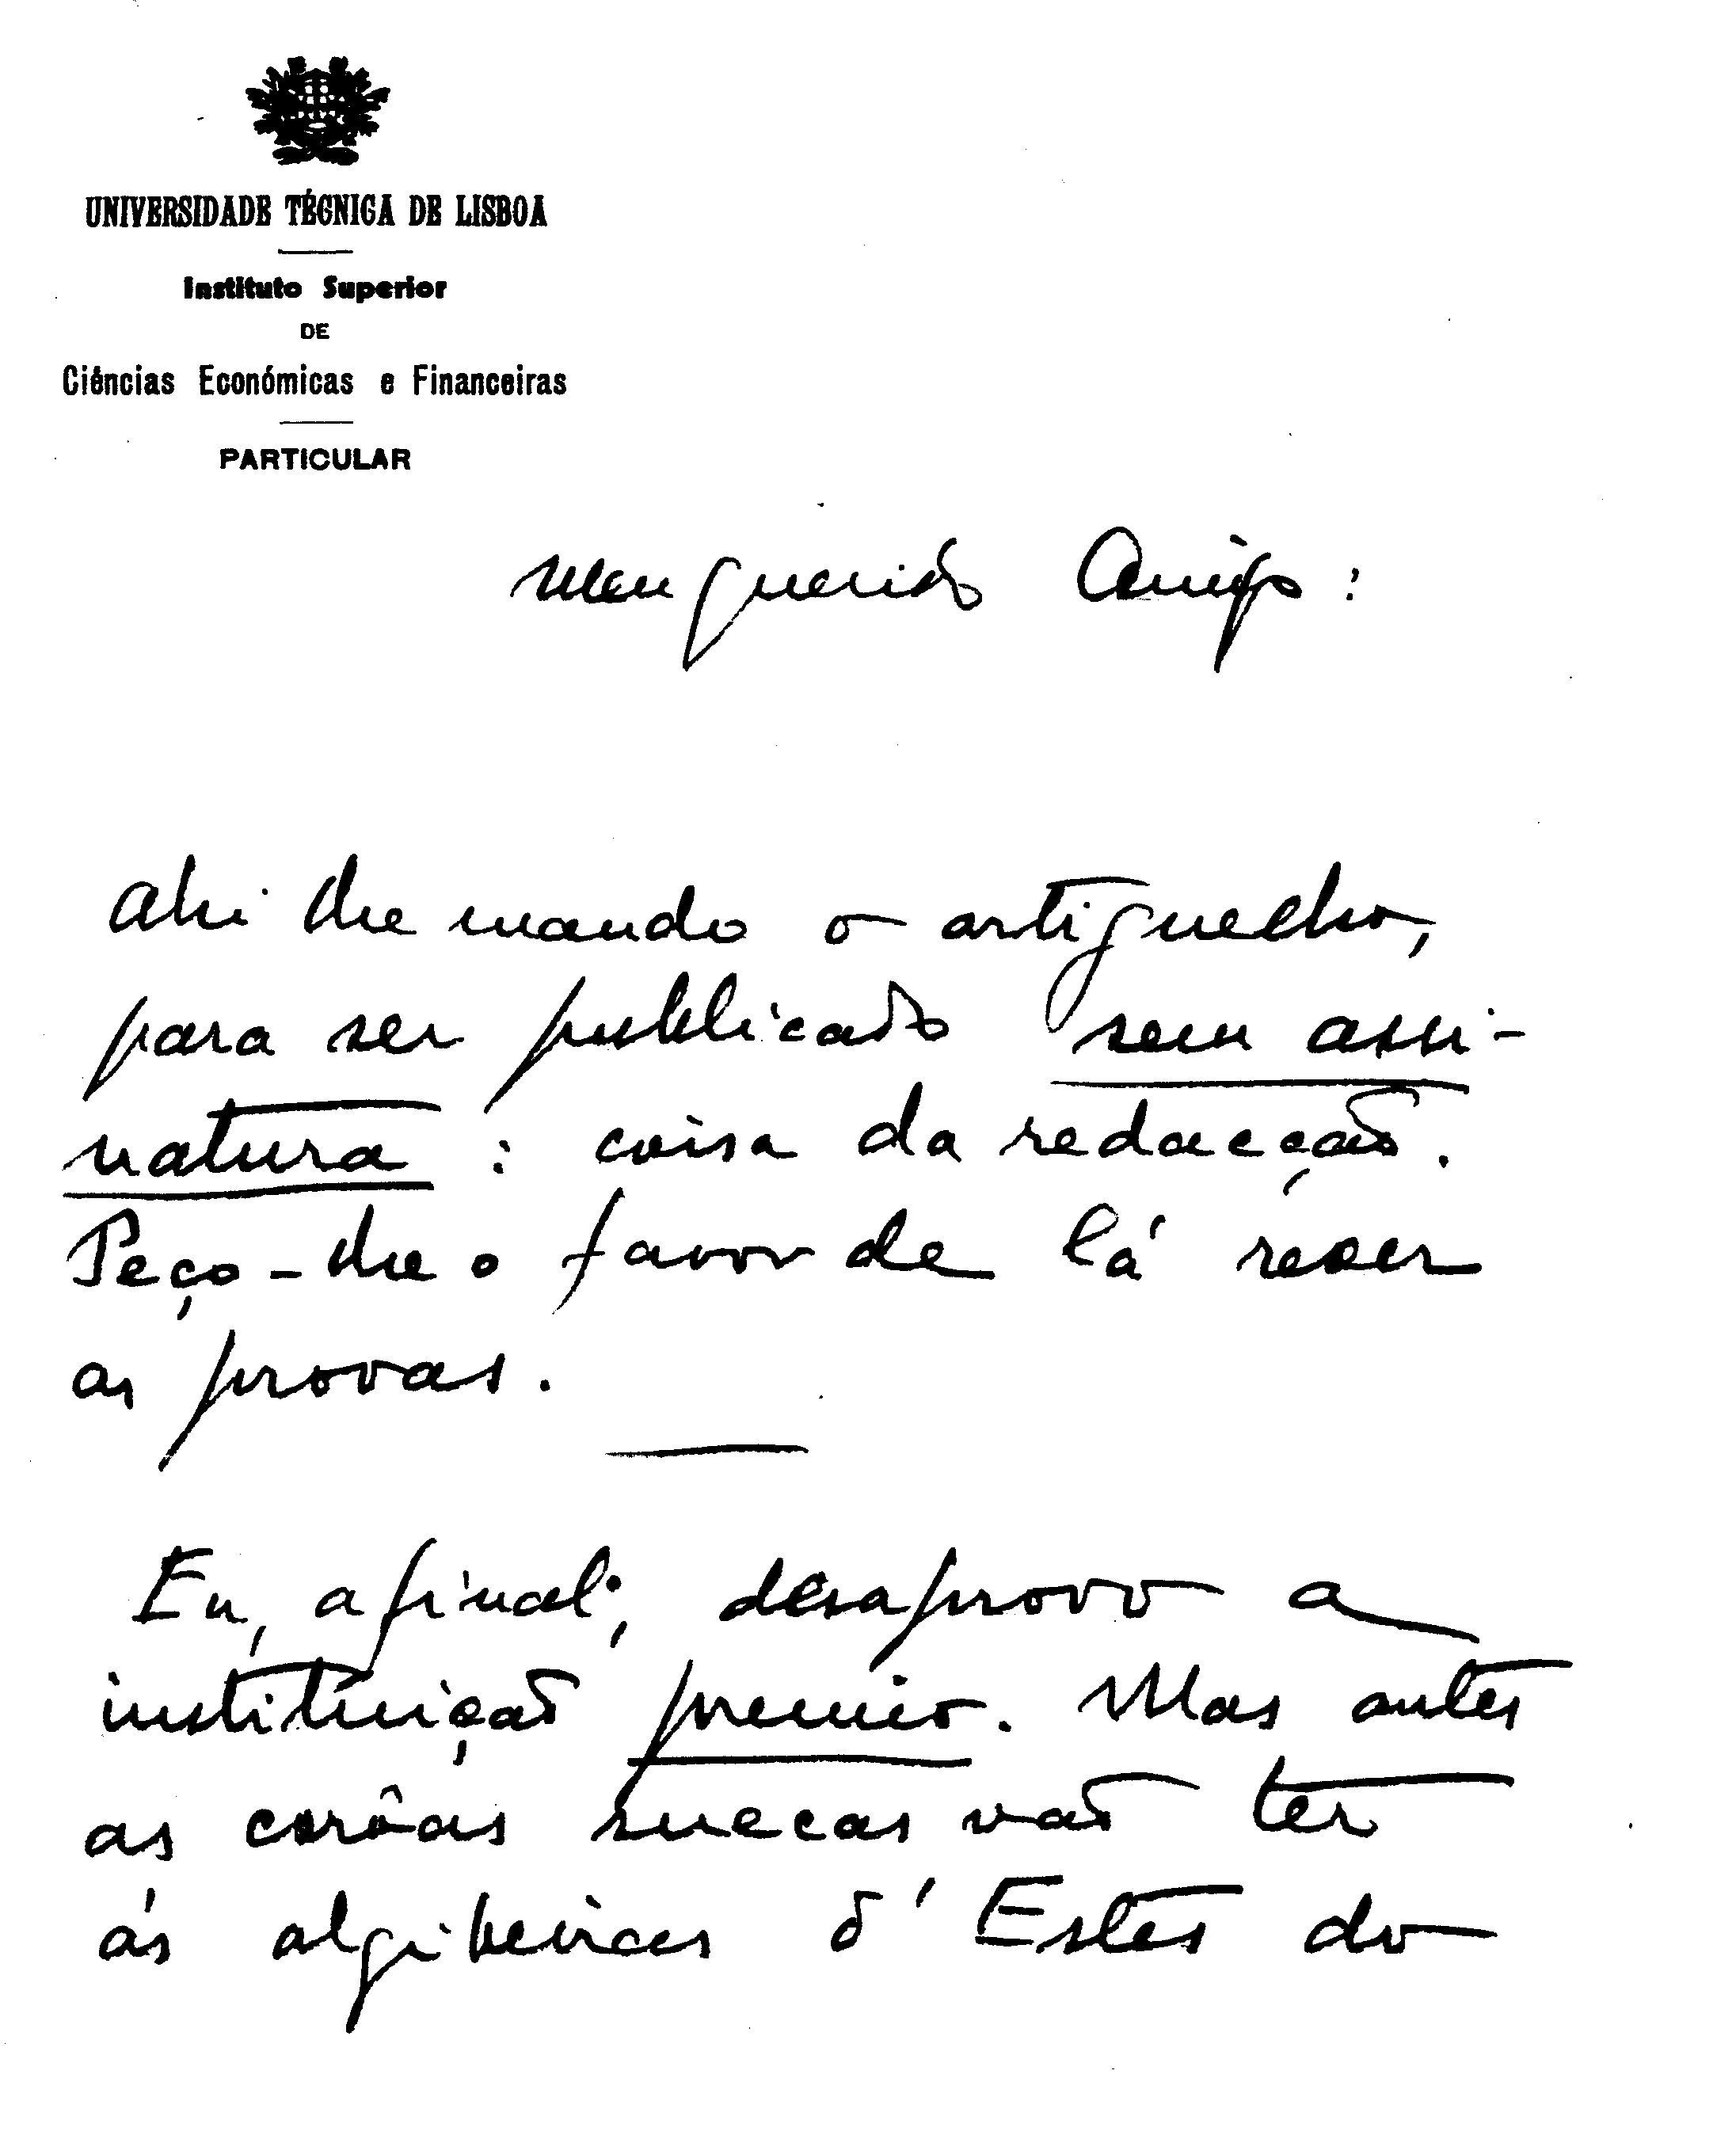 UNIVERSIDADE TÉCNICA DE LISBOA
Instituto Superior
DE
Ciências Económicas e Financeiras
PARTICULAR
Meu querido Amigo:
Ahi lhe mando o artiguelho,
para ser publicado sem assi-
natura: coisa da redacção.
Peço-lhe o favor de lá rever
as provas.
Eu, afinal, desaprovo a
instituição premio. Mas antes
as corôas suecas vão ter
ás algibeiras d'Estes do